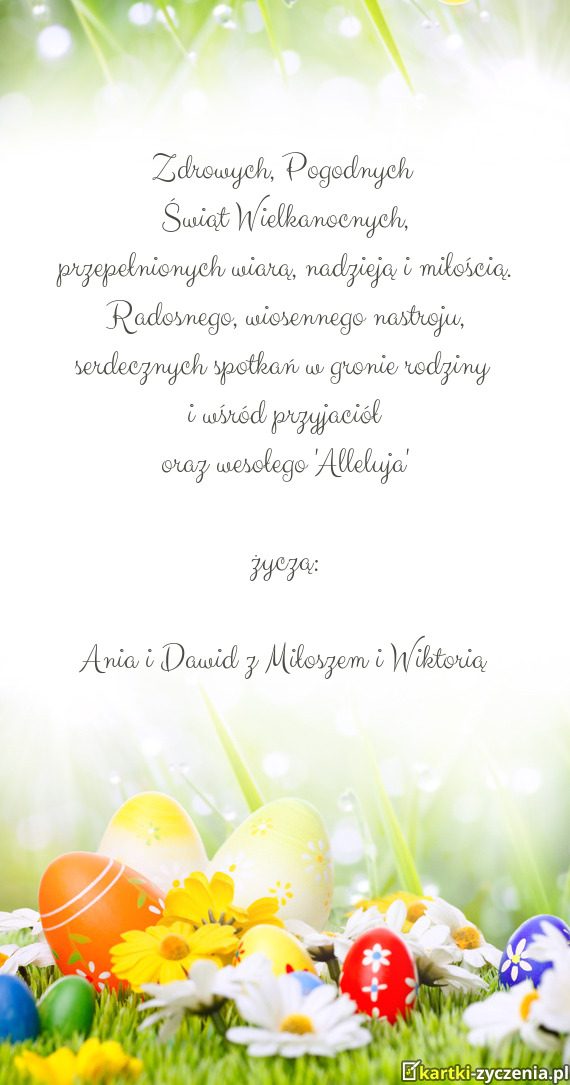 Zdrowych, Pogodnych
Świąt Wielkanocnych,
przepełnionych wiarą, nadzieją i miłością.
Radosnego, wiosennego nastroju,
serdecznych spotkań w gronie rodziny
i wśród przyjaciół
oraz wesołego 'Alleluja'
życzą:
Ania i Dawid z Miłoszem i Wiktorią
kartki-zyczenia.pl